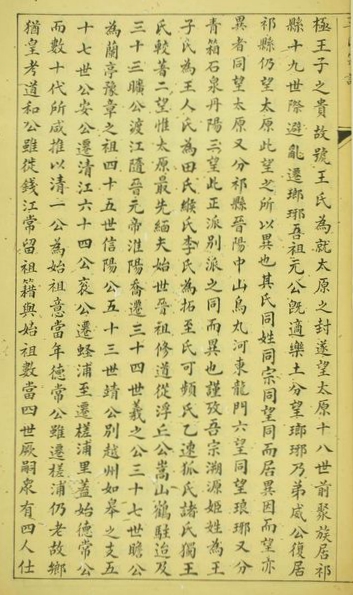 極王子之貴故號王氏為就太原之封遂望太原十八世前聚族居祁
縣十九世際避亂遷瑯琊吾祖元公既適樂土分望瑯琊乃弟威公復居
祁縣仍望太原此望之所以異也其氏同姓同宗同望同而居異因而望亦
異者同望太原又分祁縣晉陽中山烏丸河東龍門六望同望琅琊又分
青箱石泉丹陽三望此正派別派之同而異也謹攷吾宗溯源姬姓為王
子氏為王人氏為田氏緱氏李氏為拓至氏可頻氏乙速孤氏諸氏獨王
氏較著二望惟太原最先緬夫始世晉祖修道從浮丘公嵩山鶴駐迨及
三十三曠公渡江隨晉元帝淮陽喬遷三十四世羲之公三十七世瞻公
為蘭亭豫章之祖四十五世信陽公五十三世靖公別越州如皋之支五
十七世公安公遷清江六十四公袞公遷蛏浦至遷槎浦里蓋始德常公
而數十代所咸推以清一公為始祖意當年德常公雖遷槎浦仍老故鄉
猶皇考道和公雖徙錢江常留祖籍與始祖數當四世厥嗣衆有四人仕